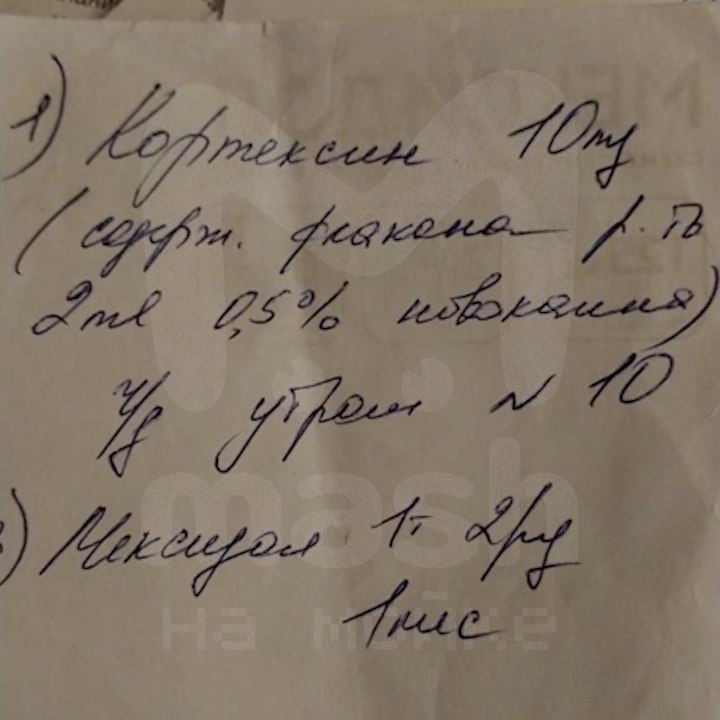 1) Кортексин 10мг
(содерж. флакона р.ть
2мл 0,5% новокаина)
ч/д утром N 10
2) Мексидол 1т 2р/д
1 мес
mash
на мойке